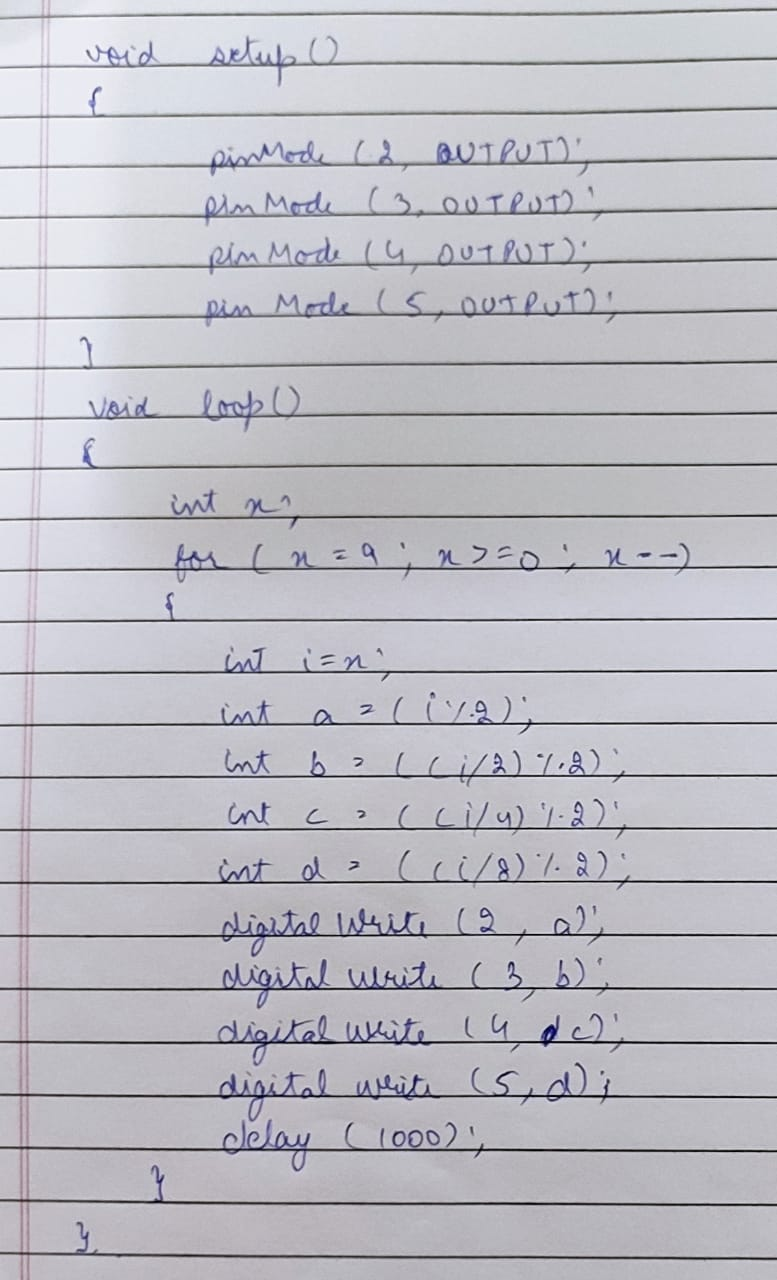 void setup()
{
pinMode (2, OUTPUT);
pinMode (3, OUTPUT);
pinMode (4, OUTPUT);
pin Mode (5, OUTPUT);
}
void loop()
{
int x;
for ( x = 9 ; x >= 0 ; x --)
{
int i = x;
int a = ( i % 2);
int b = ( ( i/2) % 2);
int c = ( ( i/4) % 2);
int d = ( ( i/8) % 2);
digital Write (2, a);
digital write (3, b);
digital write (4, c);
digital write (5, d);
delay (1000);
}
}